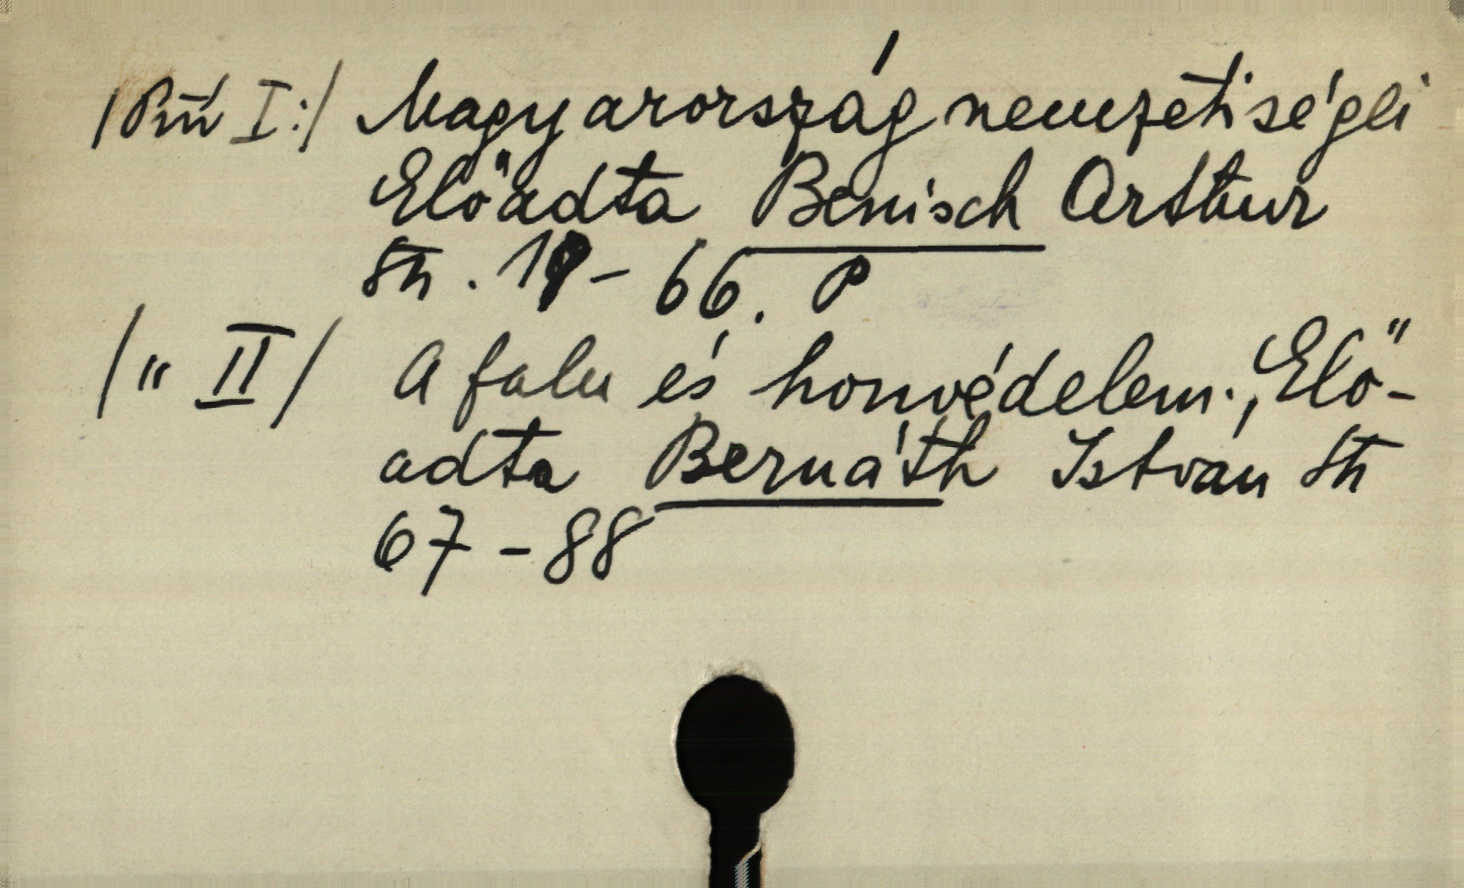 /Pin I:/ Magyarország nemzetiségei
Előadta Benisch Arthur
Sh. 19-66. P
/" II/ A falu és honvédelem., Elő-
adta Bernáth István Sh
67-88